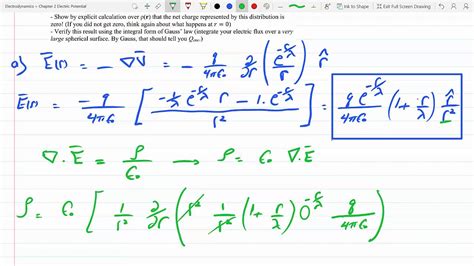 Electrodynamics > Chapter 2 Electric Potential
Ink to Shape
Exit Full Screen Drawing
Share
- Show by explicit calculation over ρ(r) that the net charge represented by this distribution is
zero! (If you did not get zero, think again about what happens at r = 0)
- Verify this result using the integral form of Gauss' law (integrate your electric flux over a very
large spherical surface. By Gauss, that should tell you Q_enc)
a) E̅(r) = - ∇V̅ = - q/4πϵ₀ ∂/∂r (e^(-r/λ)/r) r̂
E̅(r) = - q/4πϵ₀ [ (-1/λ e^(-r/λ) r - 1. e^(-r/λ)) / r² ] = q e^(-r/λ)/4πϵ₀ (1 + r/λ) r̂/r²
∇ . E̅ = ρ/ϵ₀ → ρ = ϵ₀ ∇ . E̅
ρ = ϵ₀ [ 1/r² ∂/∂r ( r² 1/r² (1 + r/λ) e^(-r/λ) q/4πϵ₀ )